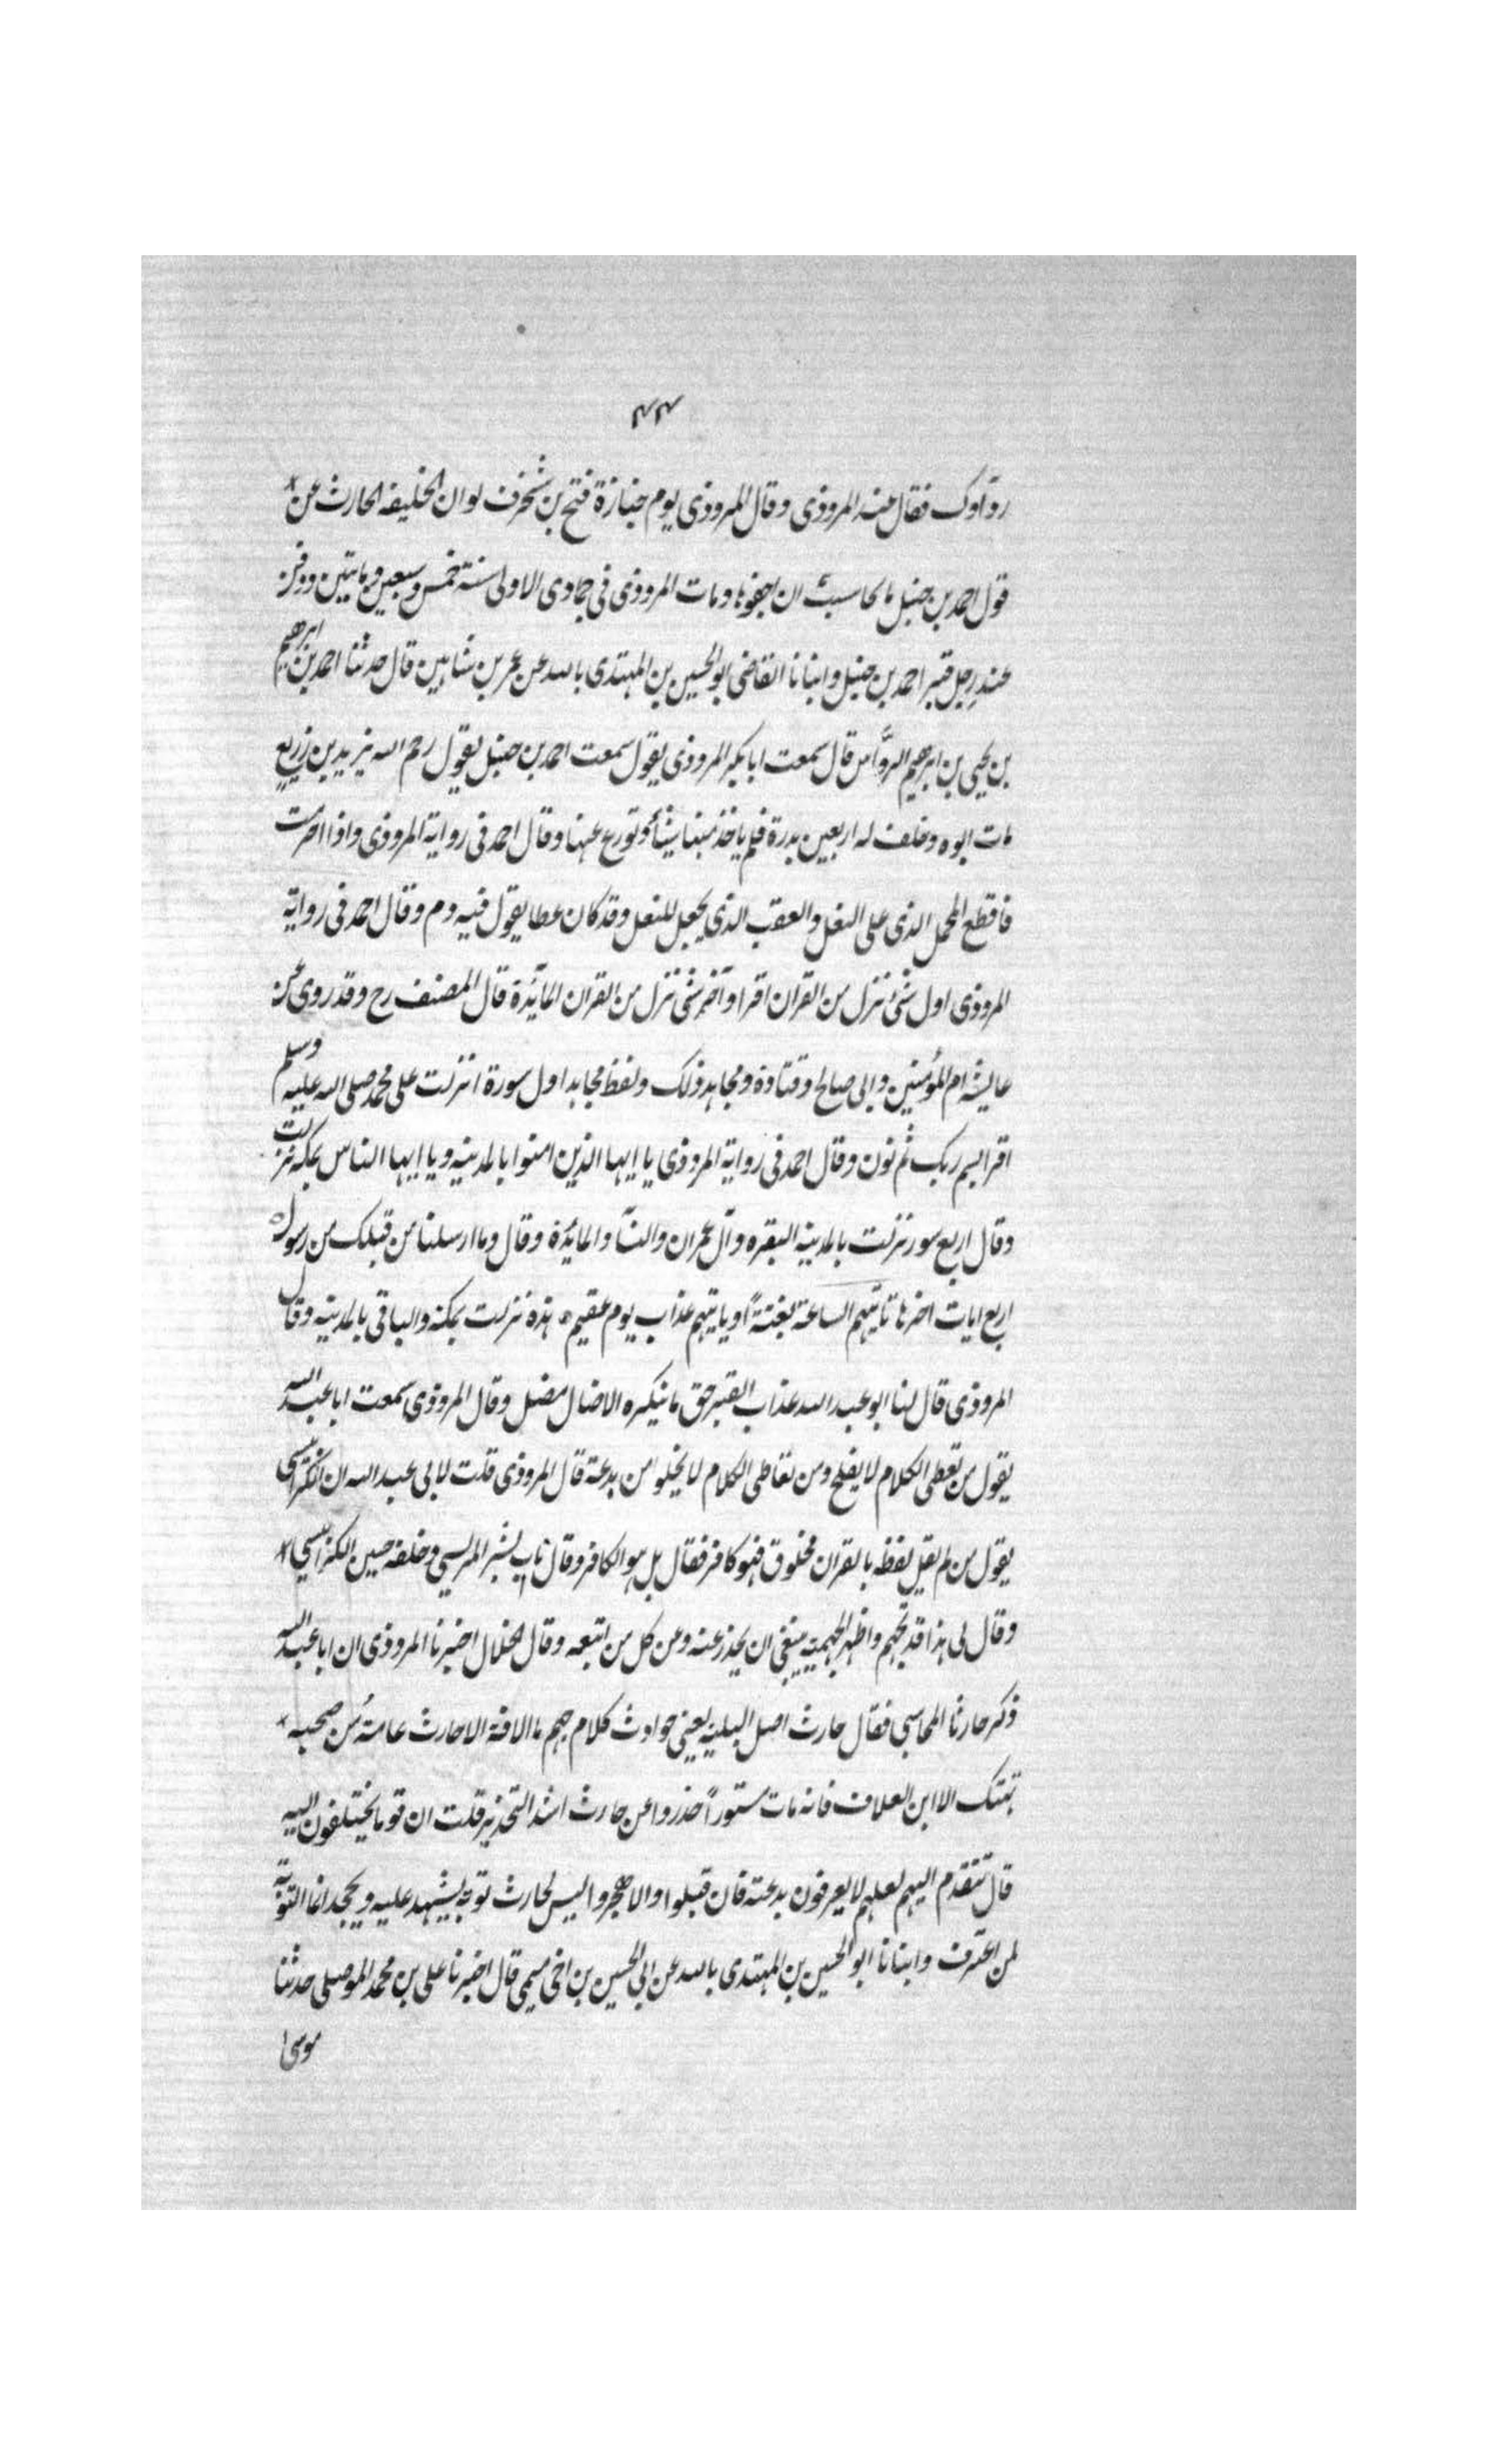 ٤٤
رواوك فقال منه المروذى وقال المروذى يوم جنازة فتح بن شخرف لو ان الخليفه الحارث عن
قول احمد بن حنبل ما كان اجفوها ومات المروذى فى جمادى الاولى سنة خمس وسبعين ومايتين ودفن
عند رجل قبر احمد بن حنبل وانبانا القاضى ابو الحسين بن المهتدى بالله عن عمر بن شاهين قال حدثنا احمد بن ابرهيم
بن يحيى بن ابرهيم الروّاس قال سمعت ابا بكر المروذى يقول سمعت احمد بن حنبل يقول رحم الله يزيد بن زريع
مات ابوه وخلف له اربعين بدرة فلم ياخذ منها شيئا وتورع عنها وقال احمد فى رواية المروذى واذا احرمت
فاقطع المحمل الذى على النعل والعقب الذى يجعل للنعل وقد كان عطا يقول فيه دم وقال احمد فى رواية
المروذى اول شئ نزل من القران اقرا وآخر شئ نزل من القران المآئدة قال المصنف رح وقد روى عن
عايشه ام المؤمنين وابى صالح وقتادة ومجاهد ذلك ولفظ مجاهد اول سورة انزلت على محمد صلى الله عليه وسلم
اقرا بسم ربك ثم نون وقال احمد فى رواية المروذى يا ايها الذين امنوا بالمدينه ويا ايها الناس بمكه نزلت
وقال اربع سور نزلت بالمدينه البقره وآل عمران والنسآ والمائدة وقال وما ارسلنا من قبلك من رسول
اربع ايات اخرها تاتيهم الساعة بغتةً او ياتيهم عذاب يوم عقيم هذه نزلت بمكة والباقى بالمدينه وقال
المروذى قال لنا ابو عبد الله عذاب القبر حق ما ينكره الا ضال مضل وقال المروذى سمعت ابا عبد الله
يقول من تعطى الكلام لا يفلح ومن تعاطى الكلام لا يخلو من بدعة قال المروذى قلت لابى عبد الله ان الكرابيسى
يقول من لم يقل لفظه بالقران مخلوق فهو كافر فقال بل هو الكافر وقال بشر المريسى وخلفه حسين الكرابيسى
وقال لى هذا قد تجهم واظهر الجهميه ينبغى ان يحذر عنه وعن كل من اتبعه وقال الخلال اخبرنا المروذى ان ابا عبد الله
ذكر حارثا المحاسبى فقال حارث اصل البليه يعنى حوادث كلام جهم ما الافة الا حارث عامة من صحبه
تهتك الا ابن العلاف فانه مات مستوراً حذروا عن حارث اشد التحذير قلت ان قوما يختلفون اليه
قال تتقدم اليهم لعلهم لا يعرفون بدعته فان قبلوا والا هجروا ليس لحارث توبة يشهد عليه ويجحد انما التوبة
لمن اعترف وانبانا ابو الحسين بن المهتدى بالله عن ابى الحسين بن اخى ميمى قال اخبرنا على بن محمد الموصلى حدثنا
موسى